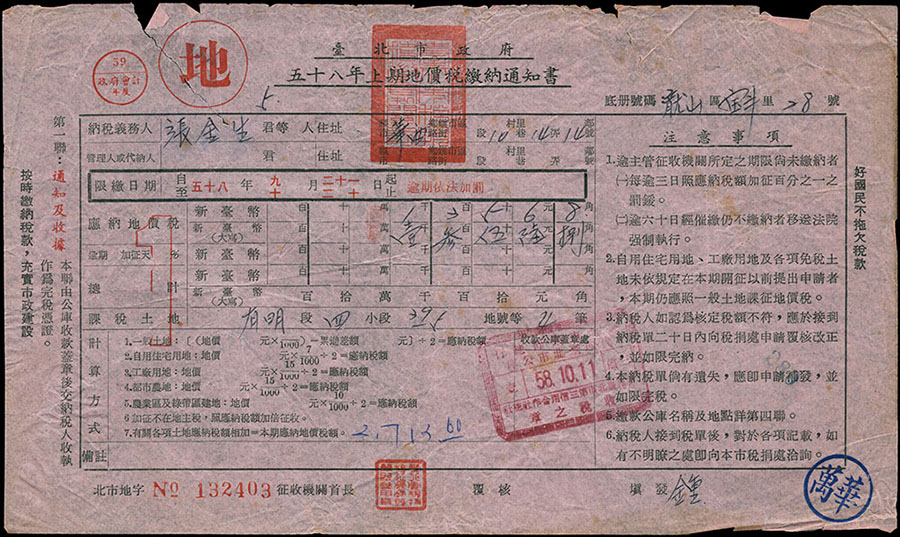 59
政府會計
年度
地
臺北市政府
五十八年上期地價稅繳納通知書
底册號碼 龍山區 里 28 號
5
納稅義務人 張金生 君等 人住址 段 村里巷 10 弄 14 鄰號 14
管理人或代納人 君 住址 段 村里巷 弄 鄰號
限繳日期 自至 五十八年 九十 月 二十一二十 日 起止 逾期依法加罰
應納地價稅 新臺幣 百十萬千百十元角 1 3 5 6 8
新臺幣(大寫) 壹 參 伍 陸 捌
逾期 加征 天 % 新臺幣 百十萬千百十元角
總計 新臺幣(大寫) 百拾萬千百拾元角
課稅土地 有明 段 四 小段 395 地號等 2 筆
計算方式
1.一般土地:〔(地價 元×7/1000)-累進差額 元〕÷2=應納稅額
2.自用住宅用地:地價 元×7/1000÷2=應納稅額
3.工廠用地:地價 元×15/1000÷2=應納稅額
4.都市農地:地價 元×15/1000÷2=應納稅額
5.農業區及綠帶區建地:地價 元×10/1000÷2=應納稅額
6.加征不在地主稅,照應納稅額加倍征收。
7.有關各項土地應納稅額相加=本期應納地價稅額。
2,713.60
收款公庫蓋章處
58.10.11
收稅之章
備註
北市地字 № 132403 征收機關首長 覆核 填發
萬華
注意事項
1.逾主管征收機關所定之期限尚未繳納者
㈠每逾三日照應納稅額加征百分之一之
罰鍰。
㈡逾六十日經催繳仍不繳納者移送法院
强制執行。
2.自用住宅用地、工廠用地及各項免稅土
地未依規定在本期開征以前提出申請者
,本期仍應照一般土地課征地價稅。
3.納稅人如認爲核定稅額不符,應於接到
納稅單二十日內向稅捐處申請覆核改正
,並如限完納。
4.本納稅單倘有遺失,應卽申請補發,並
如限完稅。
5.繳款公庫名稱及地點詳第四聯。
6.納稅人接到稅單後,對於各項記載,如
有不明瞭之處卽向本市稅捐處洽詢。
好國民不拖欠稅款
第一聯:通知及收據 本聯由公庫收款蓋章後交納稅人收執
作爲完稅憑證。
按時繳納稅款,充實市政建設